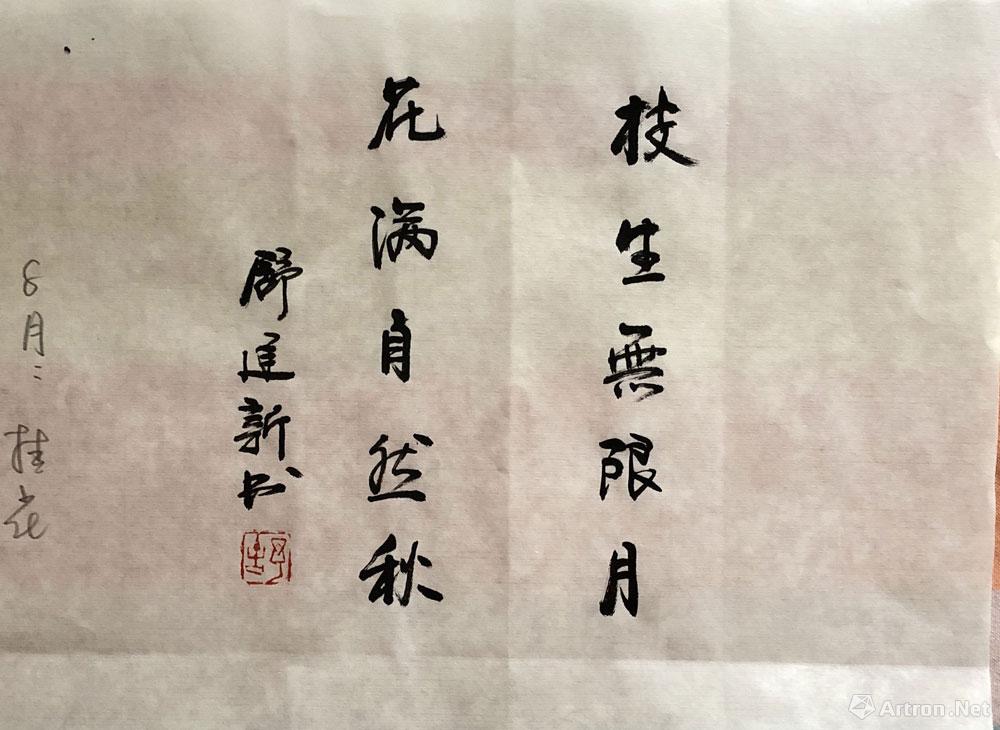 枝生無限月
花满自然秋
舒進新书
8月：桂花
Artron.Net